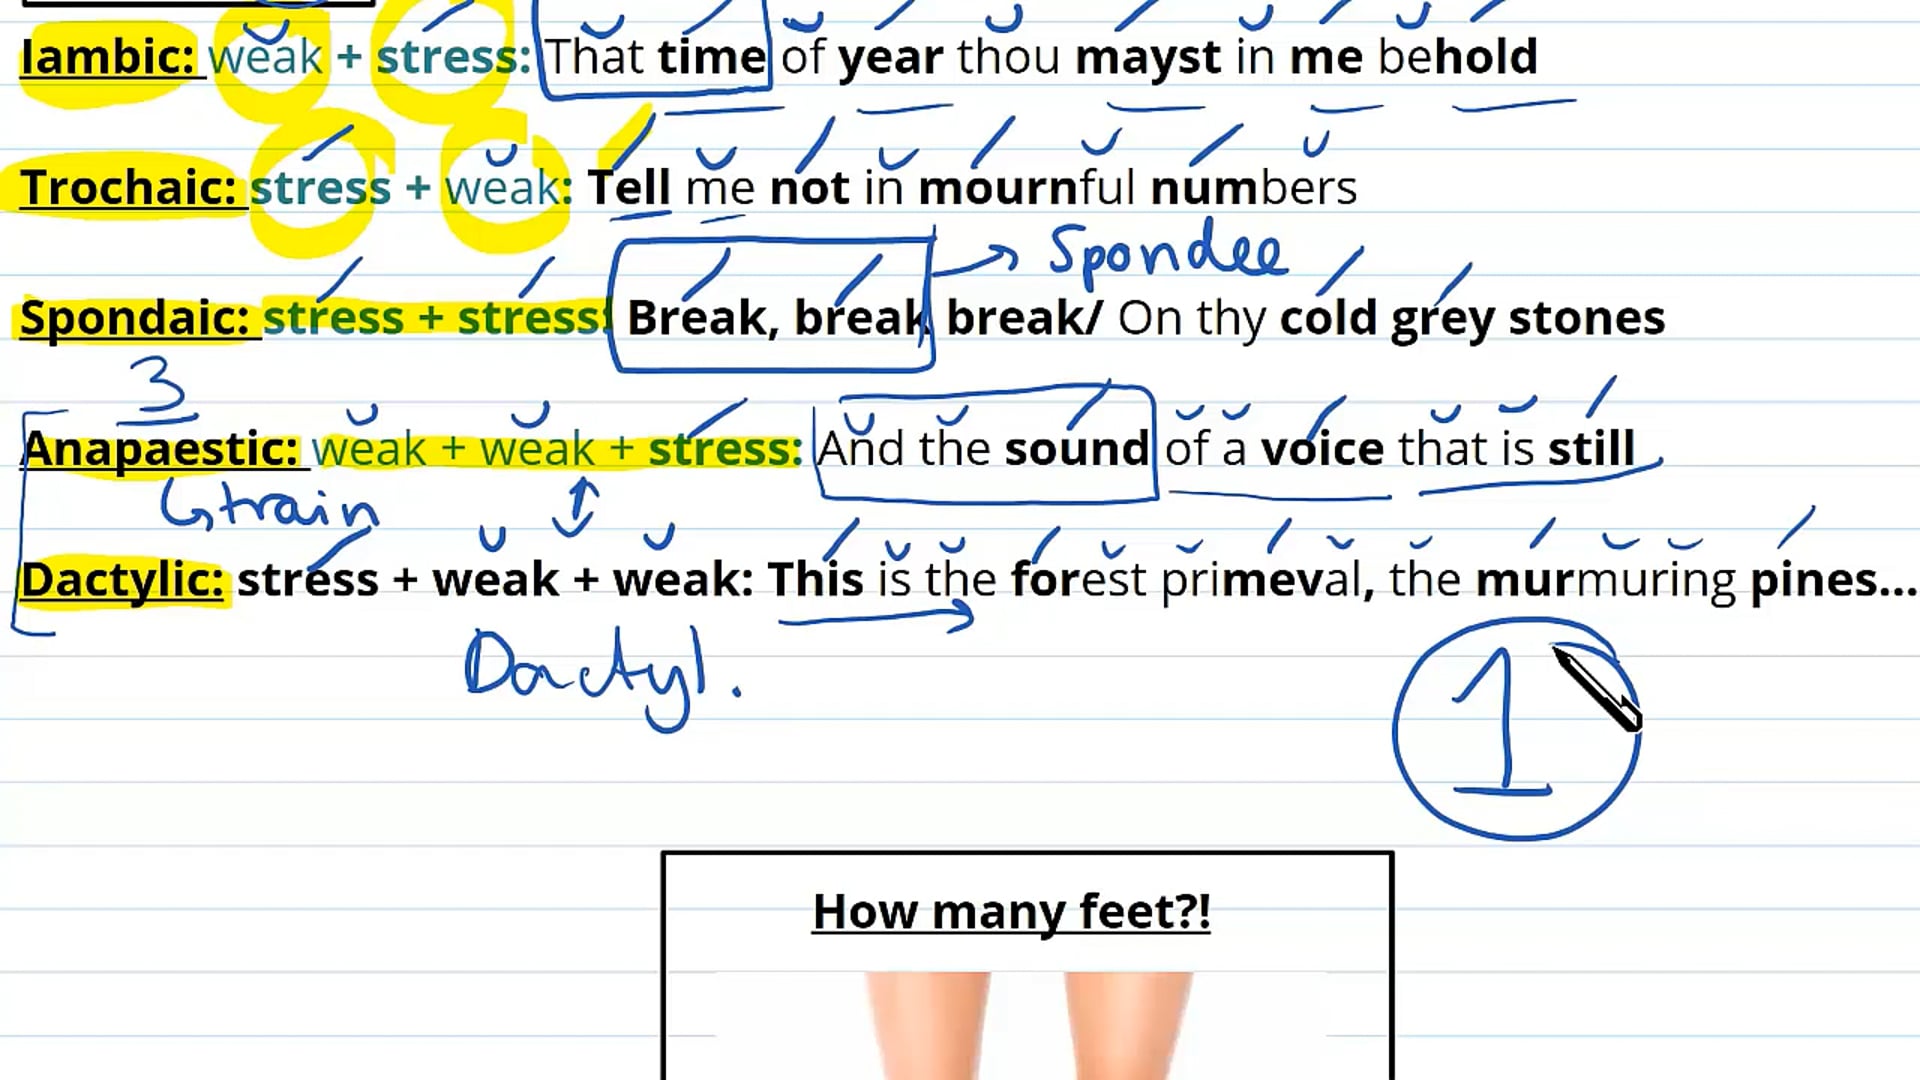 Iambic: weak + stress: That time of year thou mayst in me behold
Trochaic: stress + weak: Tell me not in mournful numbers
Spondee
Spondaic: stress + stress: Break, break break/ On thy cold grey stones
3
Anapaestic: weak + weak + stress: And the sound of a voice that is still
train
Dactylic: stress + weak + weak: This is the forest primeval, the murmuring pines...
Dactyl.
1
How many feet?!